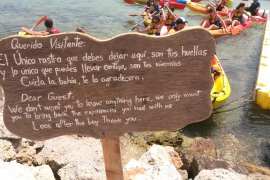 Querido Visitante:
El Único rastro que debes dejar aquí, son tus huellas
y lo único que puedes llevar contigo, son tus vivencias
Cuida la bahía, te lo agradecerá.
Dear Guest:
We don't want you to leave anything here, we only want
you to bring back the experiences you had with us
Look after the bay. Thank you.